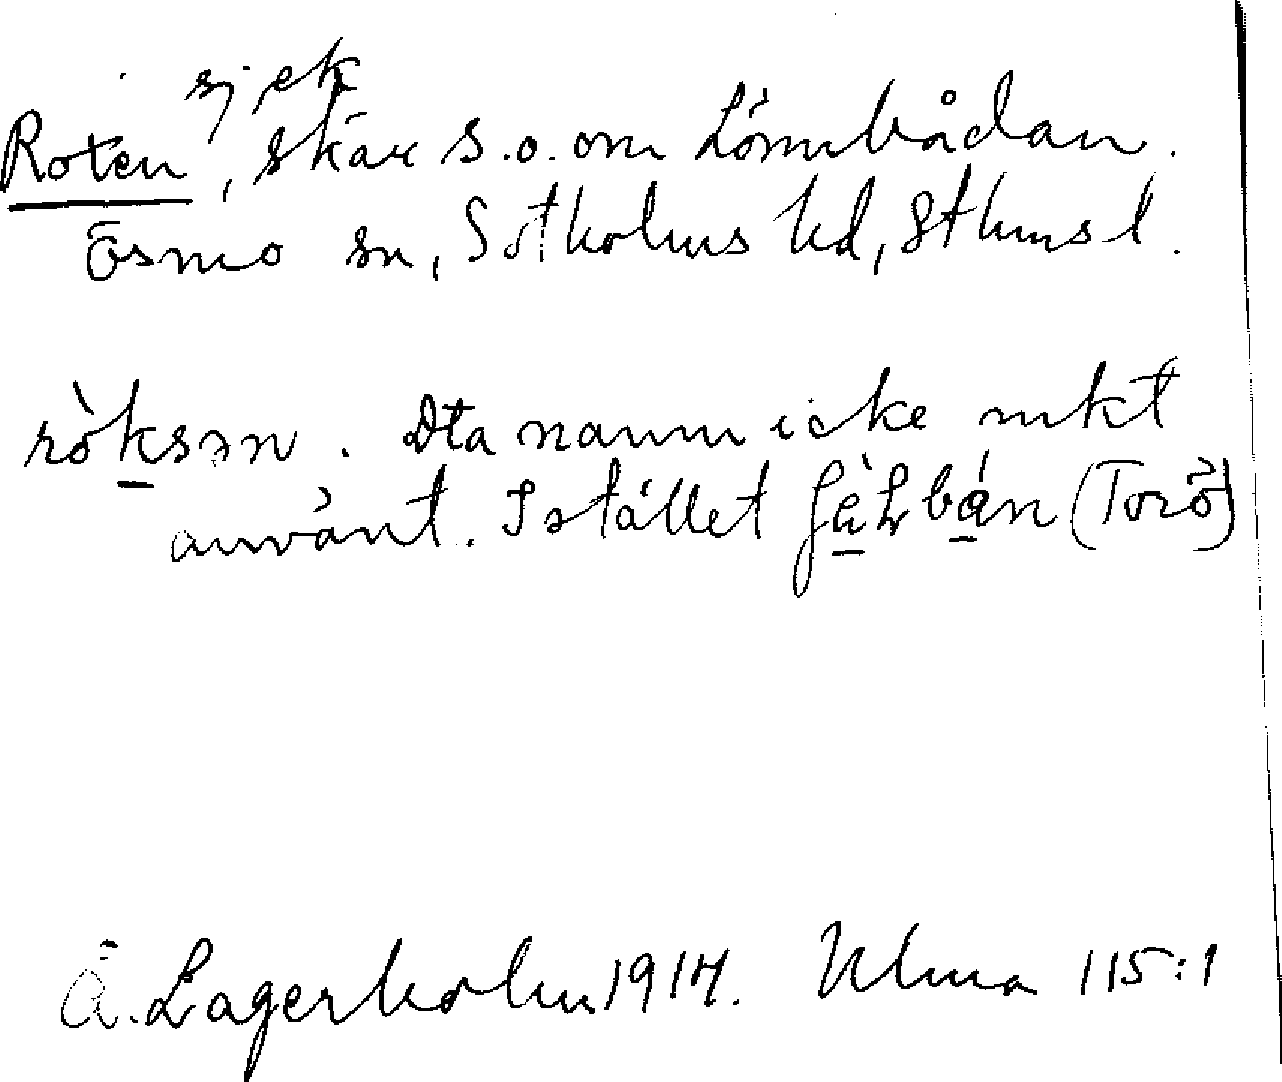 sjek
Roten, skär s.o. om Lömbådan.
Ösmo sn, Sotholms hd, Sthms l.
rò̀ksən. Dta namn icke mkt
använt. I stället (Torö)
Å. Lagerholm 1917. Ulma 115:1